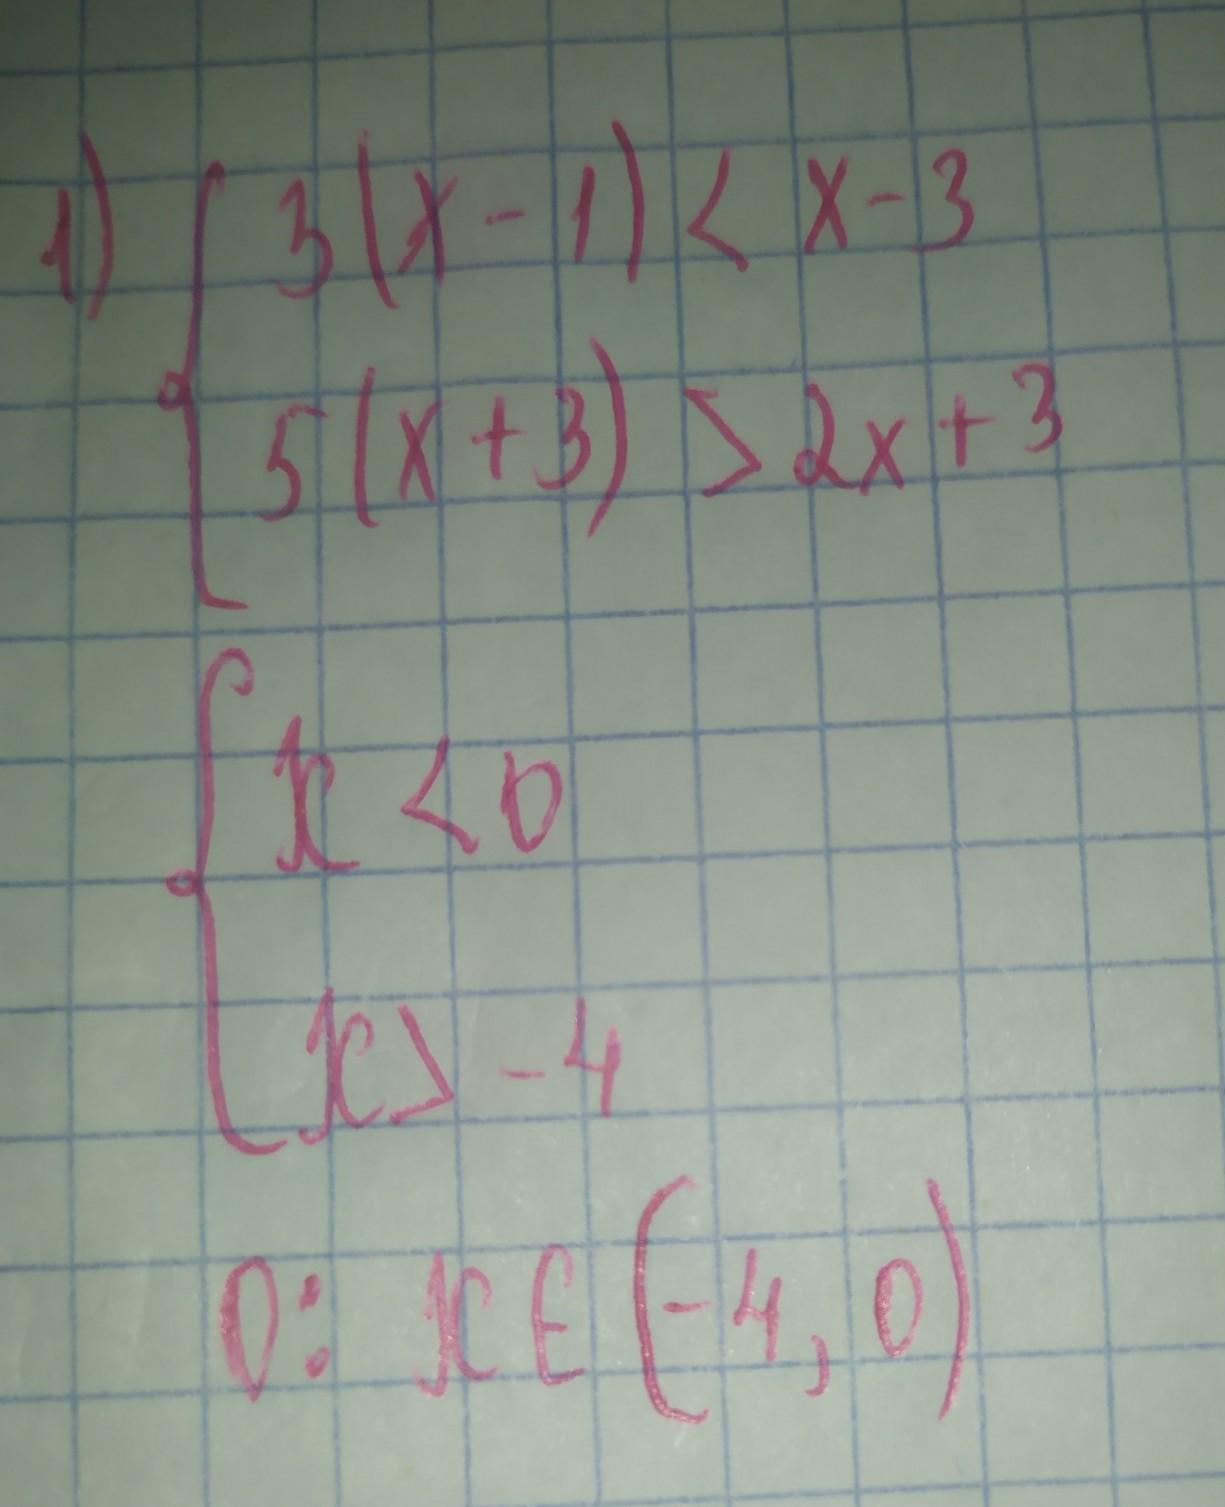 1) { 3(x-1) < x-3
5(x+3) > 2x+3
{ x < 0
x > -4
0: x ∈ (-4, 0)